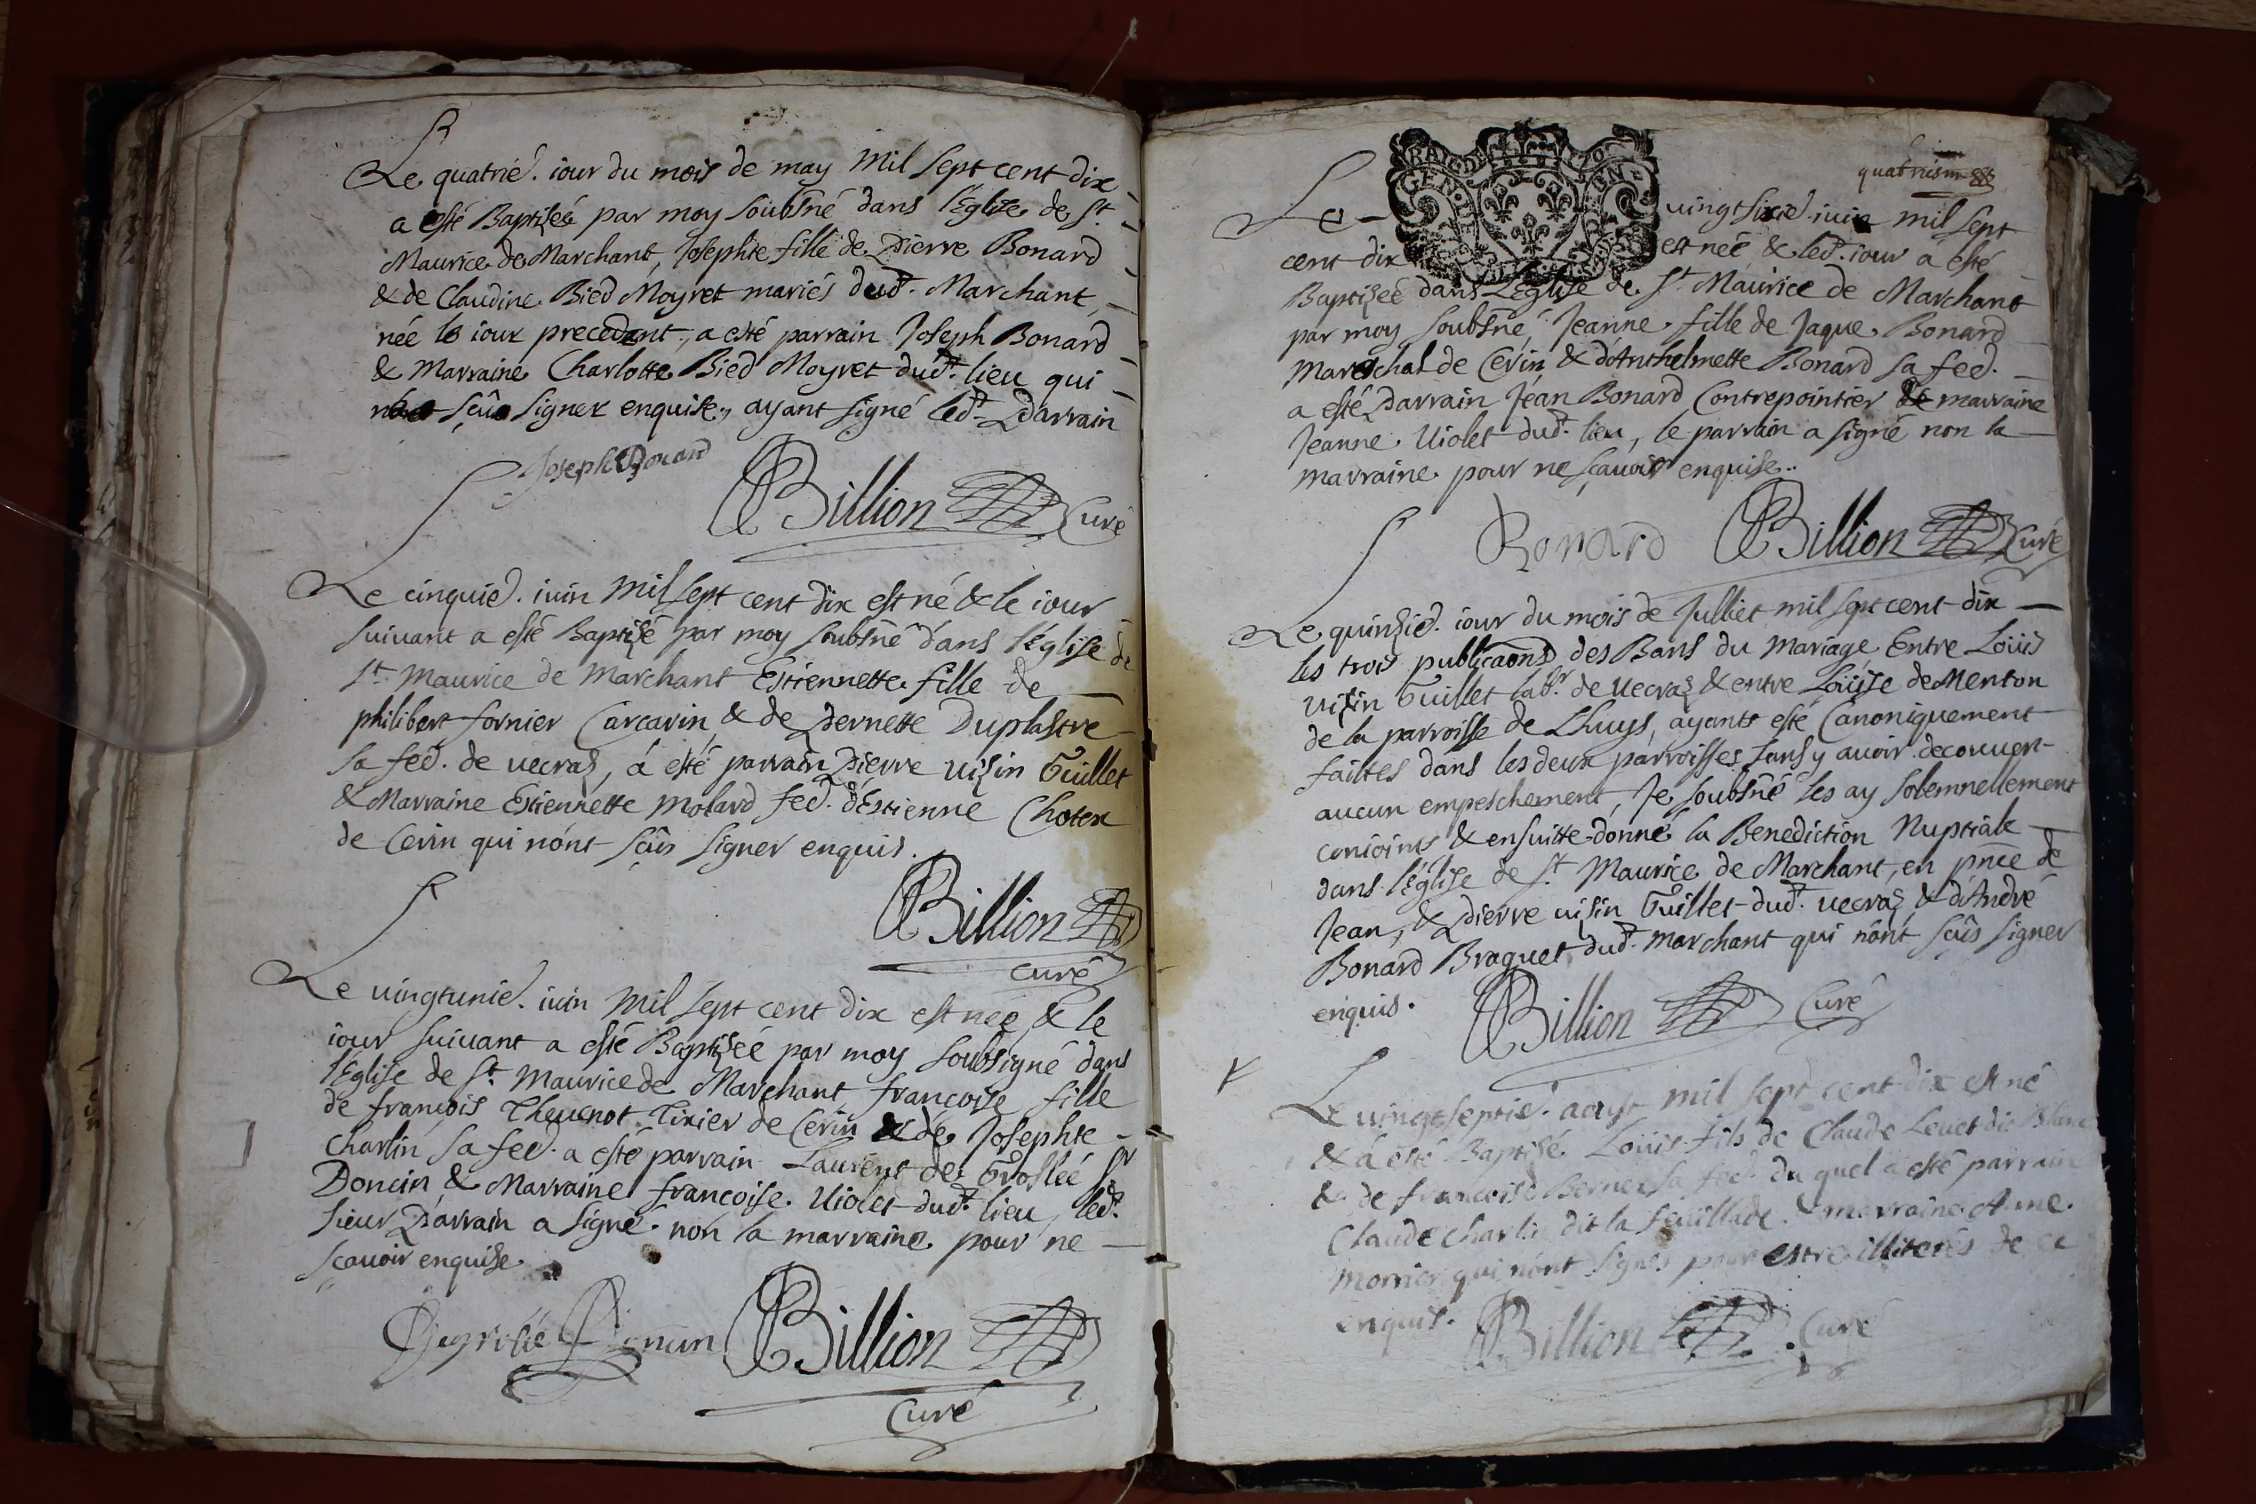 Le quatriē. iour du mois de may mil sept cent dix
a esté Baptiseé par moy soubsñé dans l'Eglise de St.
Maurice de Marchant, Josephte fille de Pierre Bonard
& de Claudine Bied Moyret mariés dud. Marchant,
née le iour precedant, a esté parrain Joseph Bonard
& Marraine Charlotte Bied Moyret dud. lieu qui
sçûe signer enquise, ayant signé led. Parrain
Joseph Bonard
Billion Curé
Le cinquiē. iuin mil sept cent dix est né & le iour
suivant a esté Baptisé par moy soubsñé dans l'église de
St. Maurice de Marchant Estiennette fille de
philibert fornier Carcavin, & de Pernette Duplastre
sa fēē. de vecras, à esté parrain Pierre visin Guillet
& Marraine Estiennette Molard fēē. d'Estienne Choten
de Cerin qui nónt sçûs signer enquis.
Billion
curé
Le vingtuniē. iuin mil sept cent dix est neé & le
iour suivant a esté Baptiseé par moy soubsigné dans
l'Eglise de St. Maurice de Marchant francoise fille
de francois Thevenot Tixier de Cerin & de Josephte
Charlin sa fēē. a esté parrain Laurent de Groslée Sr
Doncin & Marraine francoise Violet dud. lieu, led.
sieur Parrain a signé. non la marraine pour ne
sçavoir enquise
Billion
Curé
quatriesme
Le vingtsixiē. iuin mil sept
cent dix est neé & led. iour a esté
Baptiseé dans l'Eglise de St. Maurice de Marchant
par moy soubsñé, Jeanne fille de Jaque Bonard
Mareschal de Cerin & d'Anthelmette Bonard sa fēē.
a esté Parrain Jean Bonard Contrepointier & marraine
Jeanne Violet dud. lieu, le parrain a signé non la
marraine pour ne sçavoir enquise..
Bonard Billion Curé
Le quinziē. iour du mois de Julliet mil sept cent dix
les trois publicaons des Bans du Mariage Entre Loüis
visin Guillet labr. de vecras & entre Loüise de Menton
de la parroisse de Lhuys, ayants esté Canoniquement
faittes dans les deux parroisses sans y avoir decouvert
aucun empeschement, Je soubsñé les ay solemnellement
conioints & ensuitte donné la Benediction Nuptiale
dans l'Eglise de St. Maurice de Marchant, en pñce de
Jean, & Pierre visin Guillet dud. vecras & d'André
Bonard Braquet dud. Marchant qui nónt sçûs signer
enquis.
Billion Curé
Le vingtseptiē. aoust mil sept cent dix est né
& à esté Baptisé Loüis fils de Claude Levet dit Blanc
& de francoise Bernex sa fēē. du quel à esté parrain
Claude Charlin dit la feüillade & marraine Anne
Morrier qui nónt signés pour estre illiterés de ce
enquis.
Billion Curé